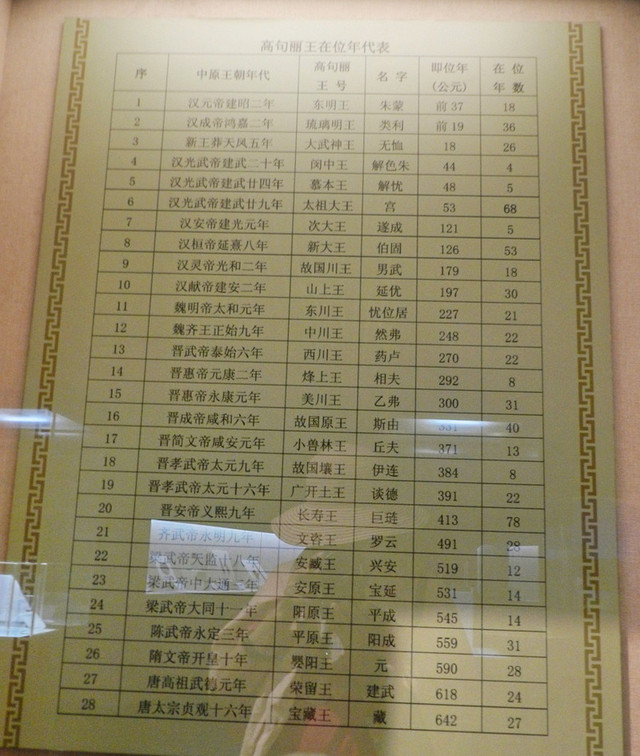 高句丽王在位年代表
序 中原王朝年代 高句丽王号 名字 即位年(公元) 在位年数
1 汉元帝建昭二年 东明王 朱蒙 前37 18
2 汉成帝鸿嘉二年 琉璃明王 类利 前19 36
3 新王莽天凤五年 大武神王 无恤 18 26
4 汉光武帝建武二十年 闵中王 解色朱 44 4
5 汉光武帝建武廿四年 慕本王 解忧 48 5
6 汉光武帝建武廿九年 太祖大王 宫 53 68
7 汉安帝建光元年 次大王 遂成 121 5
8 汉桓帝延熹八年 新大王 伯固 126 53
9 汉灵帝光和二年 故国川王 男武 179 18
10 汉献帝建安二年 山上王 延优 197 30
11 魏明帝太和元年 东川王 忧位居 227 21
12 魏齐王正始九年 中川王 然弗 248 22
13 晋武帝泰始六年 西川王 药卢 270 22
14 晋惠帝元康二年 烽上王 相夫 292 8
15 晋惠帝永康元年 美川王 乙弗 300 31
16 晋成帝咸和六年 故国原王 斯由 331 40
17 晋简文帝咸安元年 小兽林王 丘夫 371 13
18 晋孝武帝太元九年 故国壤王 伊连 384 8
19 晋孝武帝太元十六年 广开土王 谈德 391 22
20 晋安帝义熙九年 长寿王 巨琏 413 78
21 齐武帝永明九年 文咨王 罗云 491 28
22 梁武帝天监十八年 安臧王 兴安 519 12
23 梁武帝中大通三年 安原王 宝延 531 14
24 梁武帝大同十一年 阳原王 平成 545 14
25 陈武帝永定三年 平原王 阳成 559 31
26 隋文帝开皇十年 婴阳王 元 590 28
27 唐高祖武德元年 荣留王 建武 618 24
28 唐太宗贞观十六年 宝藏王 藏 642 27